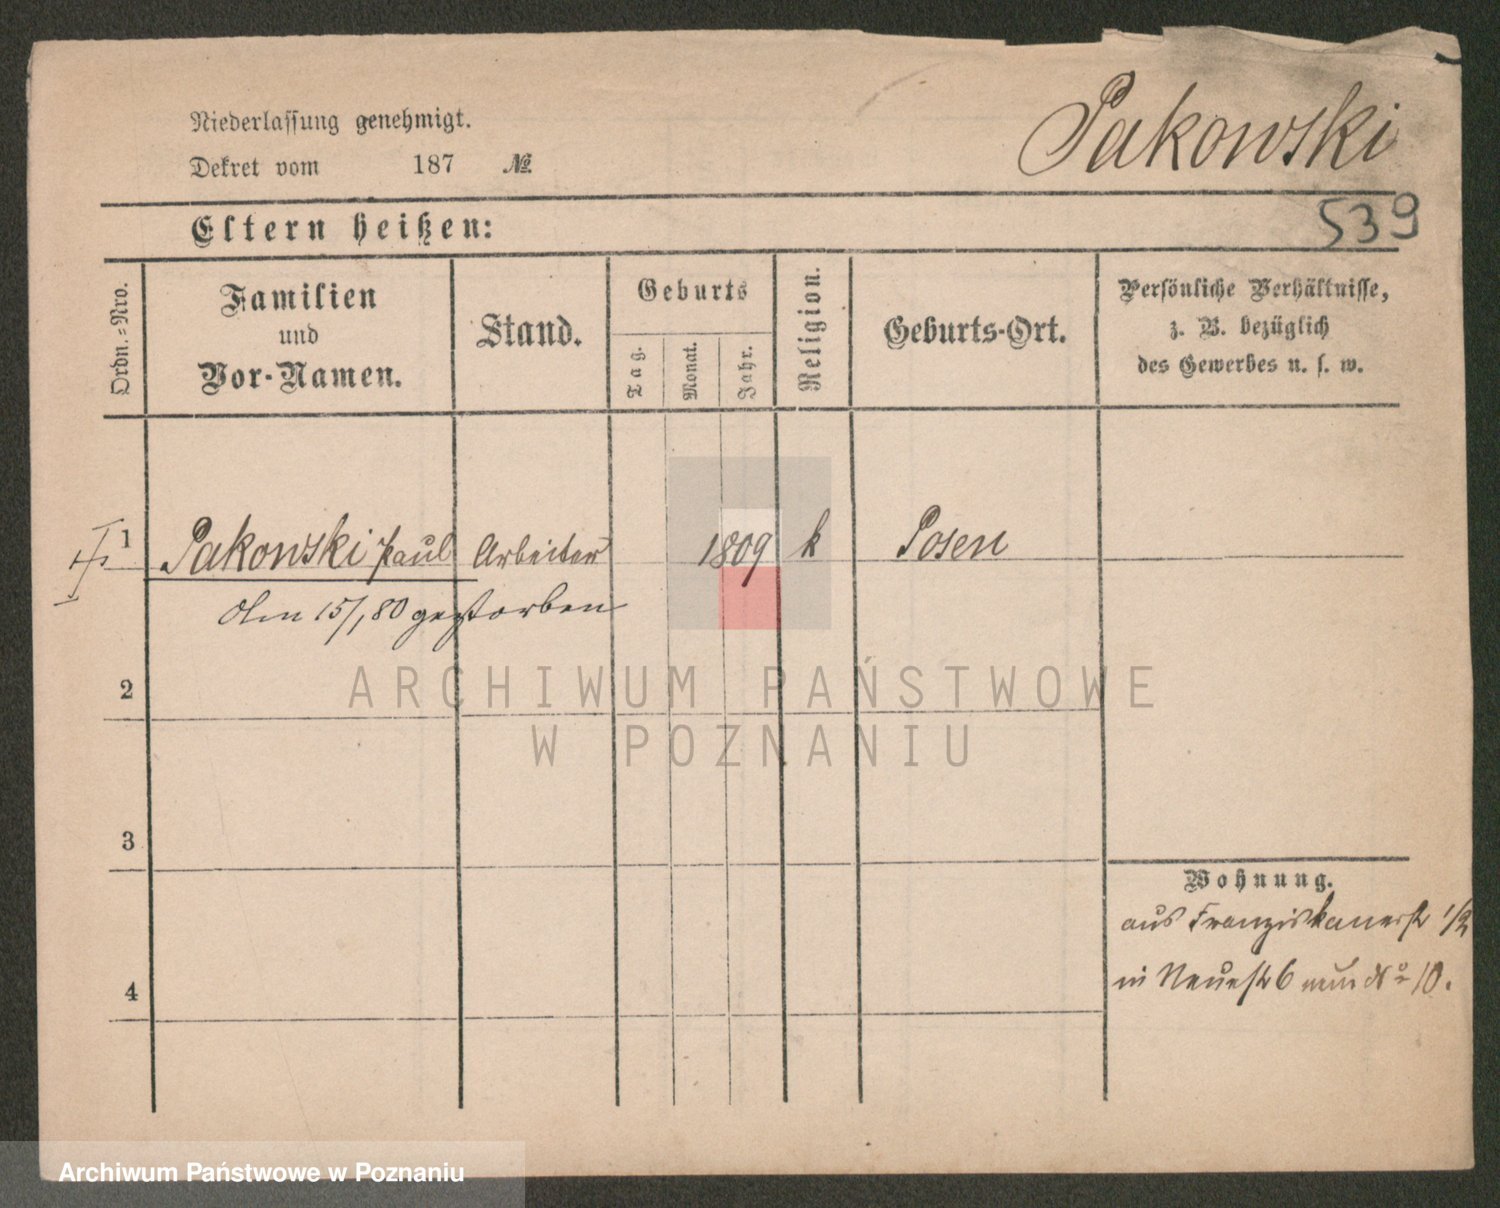 Niederlassung genehmigt.
Pakowski
Dekret vom 187 №
539
Eltern heißen:
Ordn.-Nro.
Familien
und
Vor-Namen.
Stand.
Geburts
Tag.
Monat.
Jahr.
Religion.
Geburts-Ort.
Persönliche Verhältnisse,
z. B. bezüglich
des Gewerbes u. s. w.
1 Pakowski Paul Arbeiter 1809 k Posen
Am 15/1 80 gestorben
2
ARCHIWUM PAŃSTWOWE
W POZNANIU
3
Wohnung.
aus Franziskanerstr 1/2
in Neuestr 6 nun № 10.
4
Archiwum Państwowe w Poznaniu